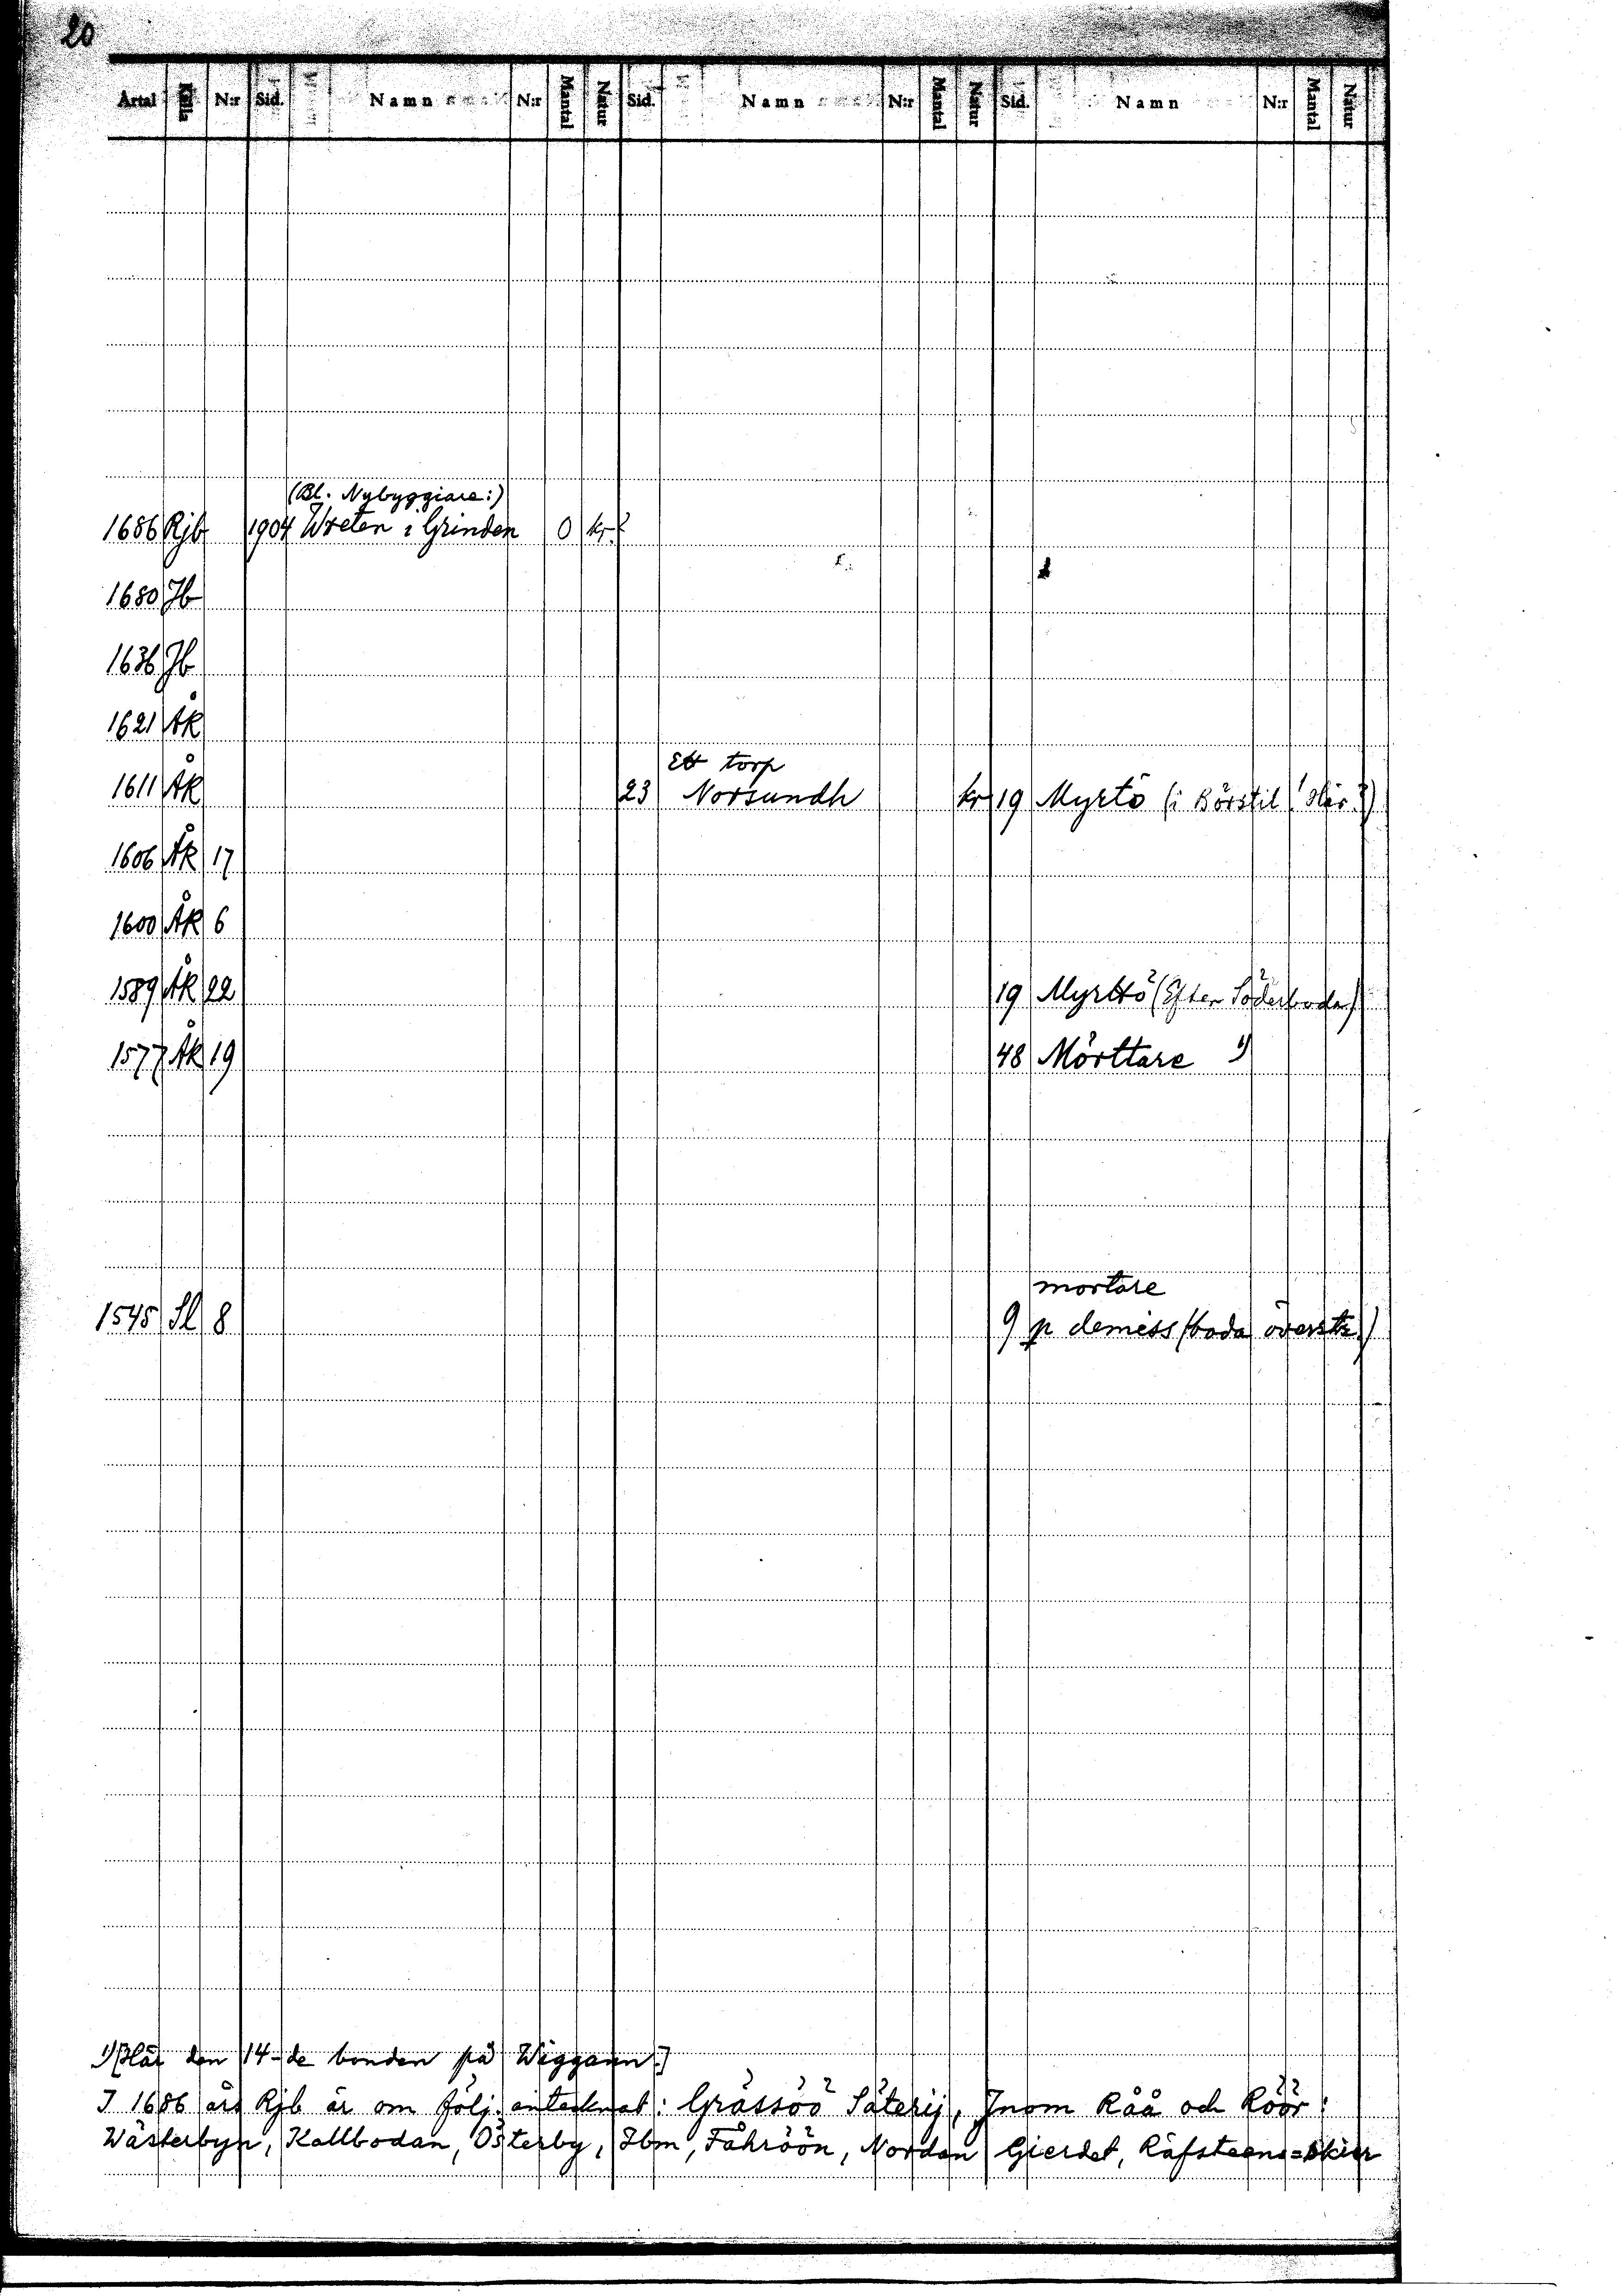 20
Årtal Källa N:r Sid. Namn N:r Mantal Natur Sid. Namn N:r Mantal Natur Sid. Namn N:r Mantal Natur
(Bl. Nybyggiare:)
1686 Rjb 1904 Wreten i Grinden 0 kr.
1680 Jb
1636 Jb
1621 ÅK
Ett torp
1611 ÅK 23 Norsundh kr 19 Myrtö (i Börstil! Här?)
1606 ÅK 17
1600 ÅK 6
1589 ÅK 22 19 Myrttö (Efter Söderboda)
1577 ÅK 19 48 Mörttare 1)
mortare
1545 Sl 8 9 p demiss (boda överstr.)
1) [Här den 14-de bonden på Wiggann.]
I 1686 års Rjb är om följ. antecknat: Grässöö Säterij, Jnom Råå och Röör:
Wästerbyn, Kallbodan, Österby, Ibm, Fåhröön, Nordan Gierdet, Räfsteens=skier